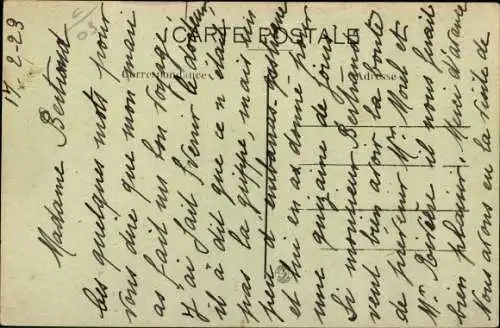 CARTE POSTALE
Correspondance
Adresse
17-2-23
Madame Bertrand
Ces quelques mots pour
vous dire que mon mari
as fait un bon voyage.
J'ai fait venir le docteur,
il a dit que ce n'était
pas la grippe, mais un
peu d'embarras gastrique
et lui en as donné pour
une quinzaine de jours.
Si monsieur Bertrand
veut bien avoir la bonté
de prévenir Mr Mout et
Mr il nous ferait
bien plaisir. Merci d'avance
Nous avons eu la visite de